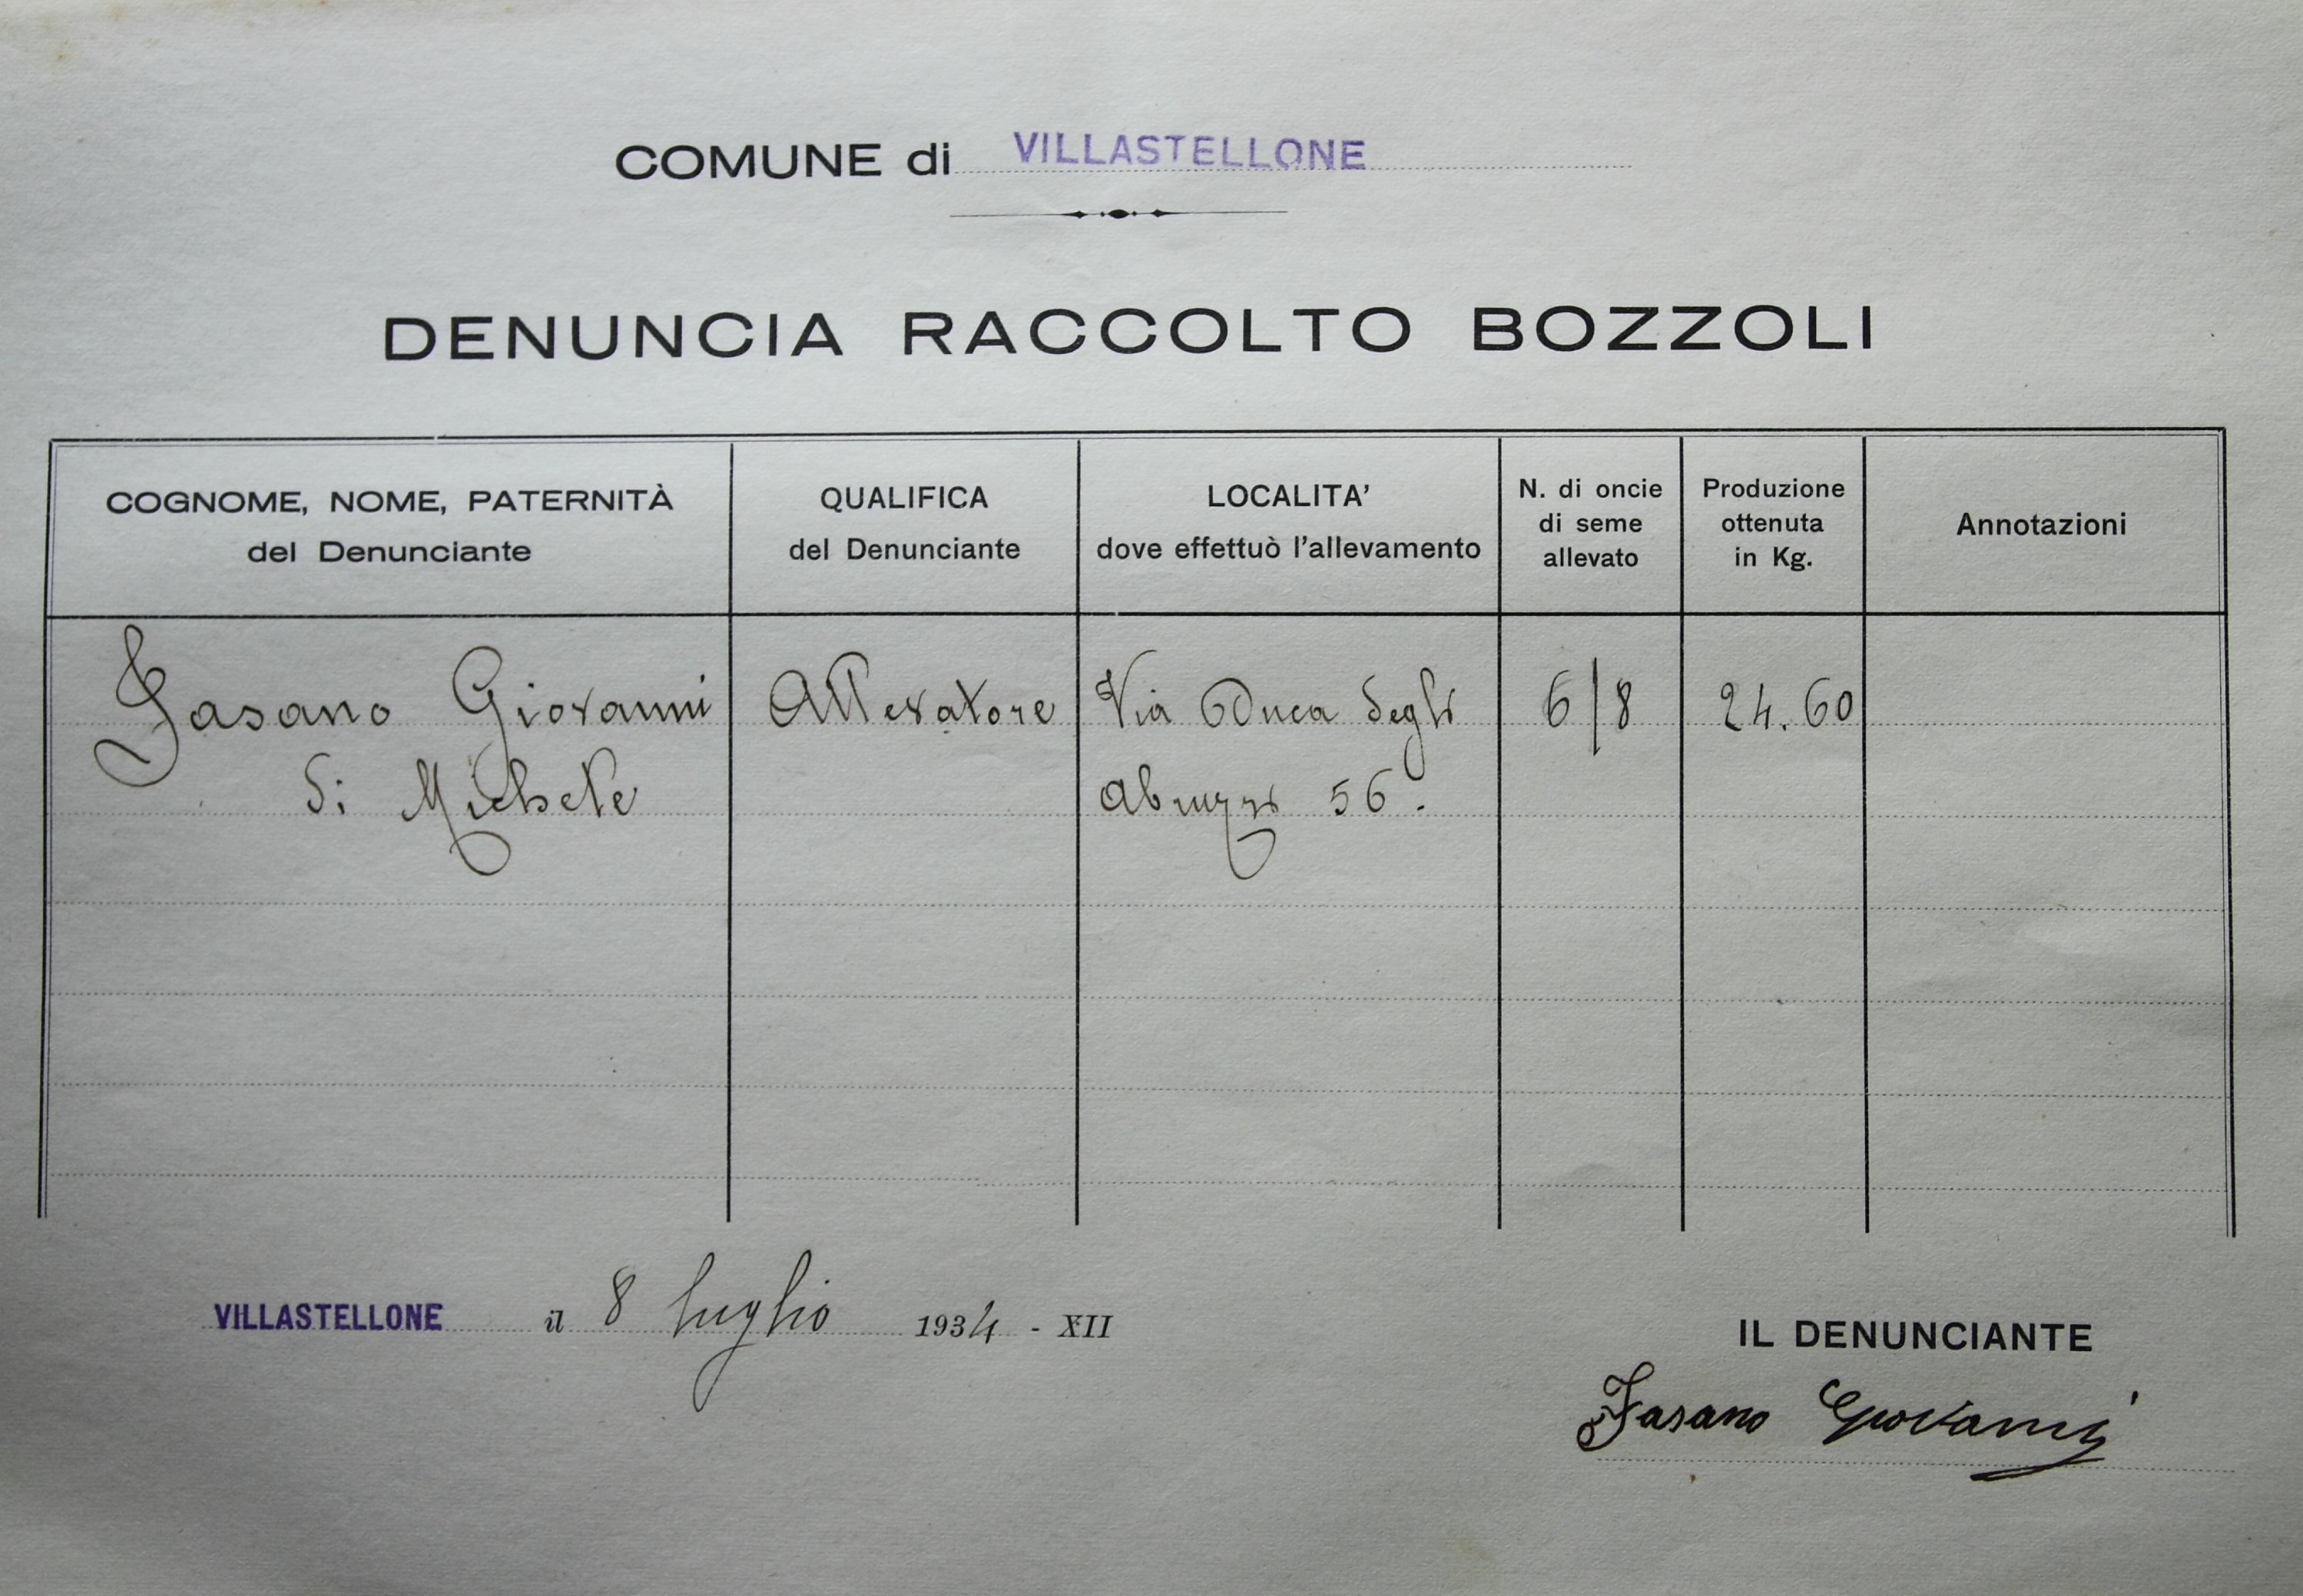 COMUNE di VILLASTELLONE
DENUNCIA RACCOLTO BOZZOLI
COGNOME, NOME, PATERNITÀ
del Denunciante
QUALIFICA
del Denunciante
LOCALITA'
dove effettuò l'allevamento
N. di oncie
di seme
allevato
Produzione
ottenuta
in Kg.
Annotazioni
Fasano Giovanni
di Michele
Allevatore
Via Duca degli
Abruzzi 56.
6/8
24.60
VILLASTELLONE il 8 luglio 1934 - XII
IL DENUNCIANTE
Fasano Giovanni